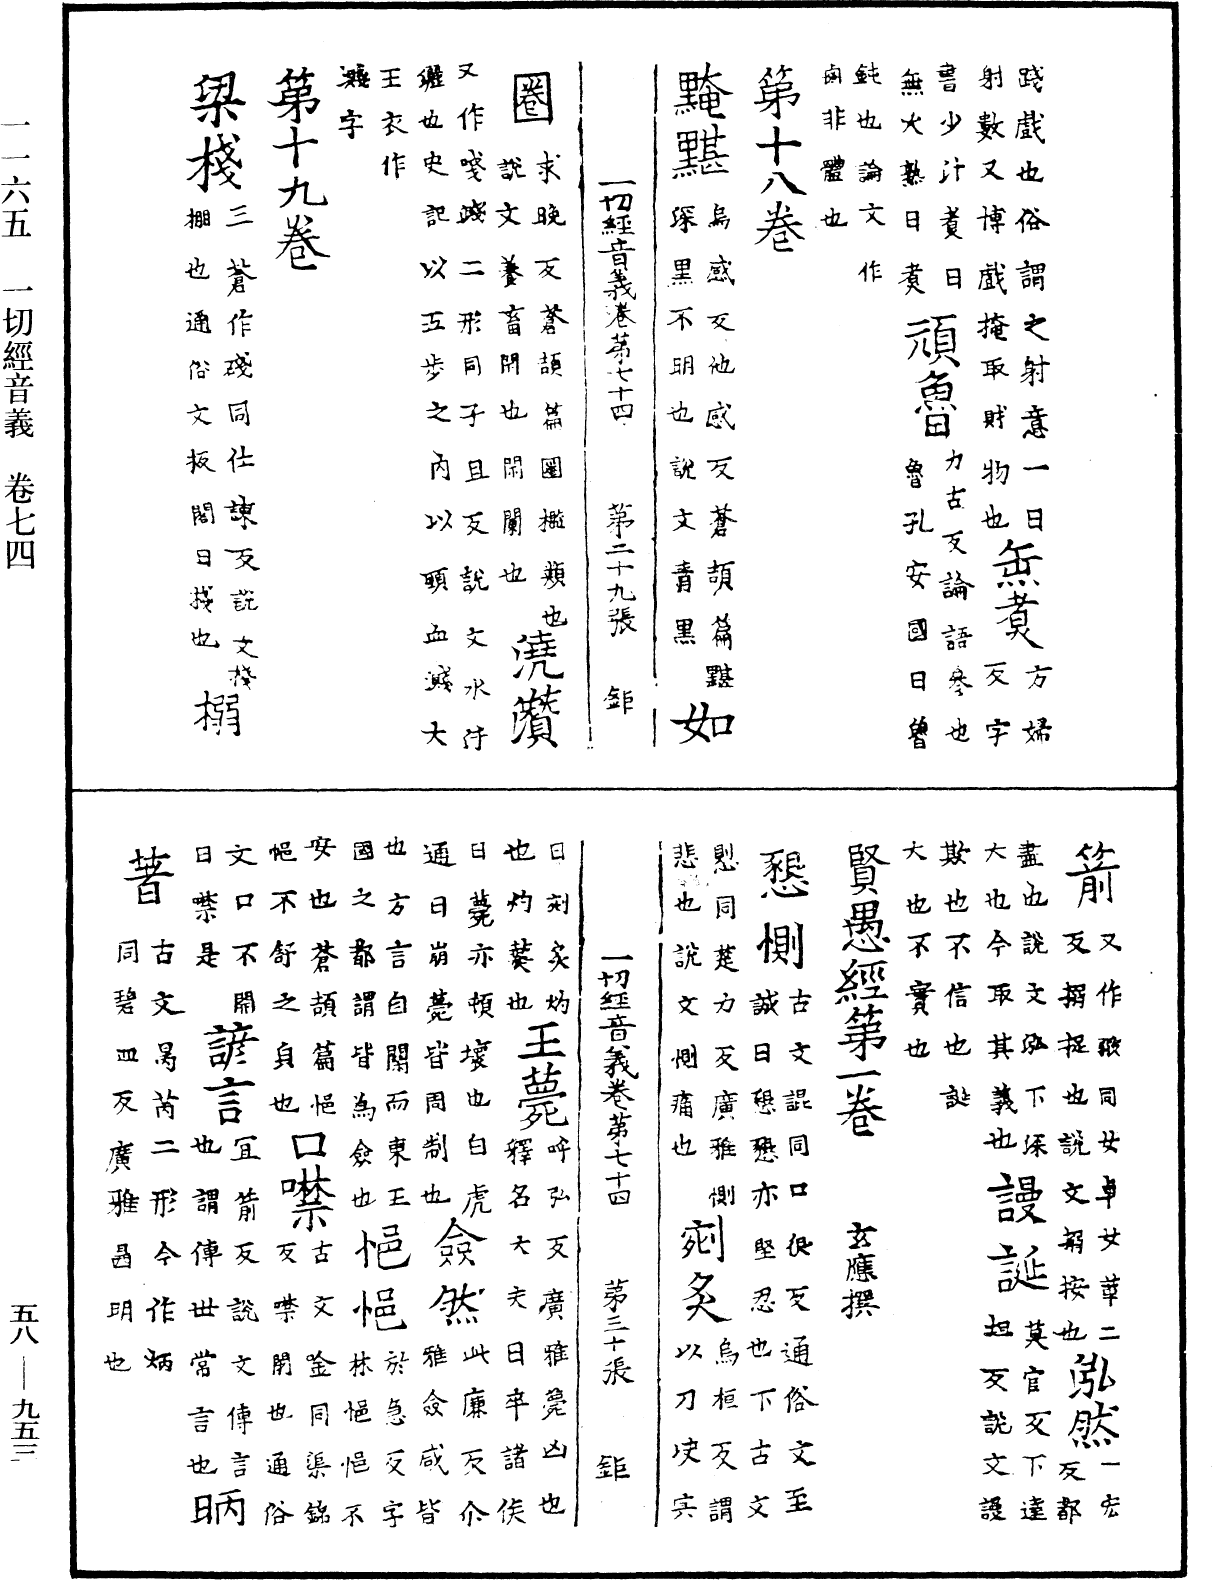 踐戲也俗謂之射意一曰
射數又博戲掩取財物也 缹煮 方婦反字
書少汁煮曰
無火熟曰煮 頑魯 力古反論語參也
魯孔安國曰魯
鈍也論文作
鹵非體也
第十八卷
黤黮 烏感反他感反蒼頡篇黮
深黑不明也說文青黑 如
一切經音義卷第七十四 第二十九張 鉅
圈 求晚反蒼頡篇圈檻類也
說文養畜閑也閑闌也 澆灒
又作㖮濺二形同子旦反說文水汙
灑也史記以五步之內以頸血濺大
王衣作
濺字
第十九卷
梁棧 三蒼作碊同仕諫反說文棧
棚也通俗文板閣曰棧也 搦
箭 又作敠同女卓女革二
反搦捉也說文搦按也 泓然 一宏
反都
盡也說文泓下深
大也今取其義也 謾誕 莫官反下達
坦反說文謾
欺也不信也誕
大也不實也
賢愚經第一卷 玄應撰
懇惻 古文詪同口很反通俗文至
誠曰懇懇亦堅忍也下古文
𢡟同楚力反廣雅惻
悲也說文惻痛也 剜炙 烏桓反謂
以刀㕟宍
一切經音義卷第七十四 第三十張 鉅
曰剜炙灼
也灼爇也 王薨 呼弘反廣雅薨凶也
釋名大夫曰卒諸侯
曰薨亦頓壞也白虎
通曰崩薨皆周制也 僉然 此廉反尒
雅僉咸皆
也方言自關而東王
國之都謂皆為僉也 悒悒 於急反字
林悒悒不
安也蒼頡篇悒
悒不舒之皃也 口噤 古文唫同渠錦
反噤閉也通俗
文口不開
曰噤是 諺言 宜箭反說文傳言
也謂傳世常言也 昞
著 古文昺芮二形今作炳
同碧皿反廣雅昺明也
一一六五 一切經音義 卷七四
五八—九五三